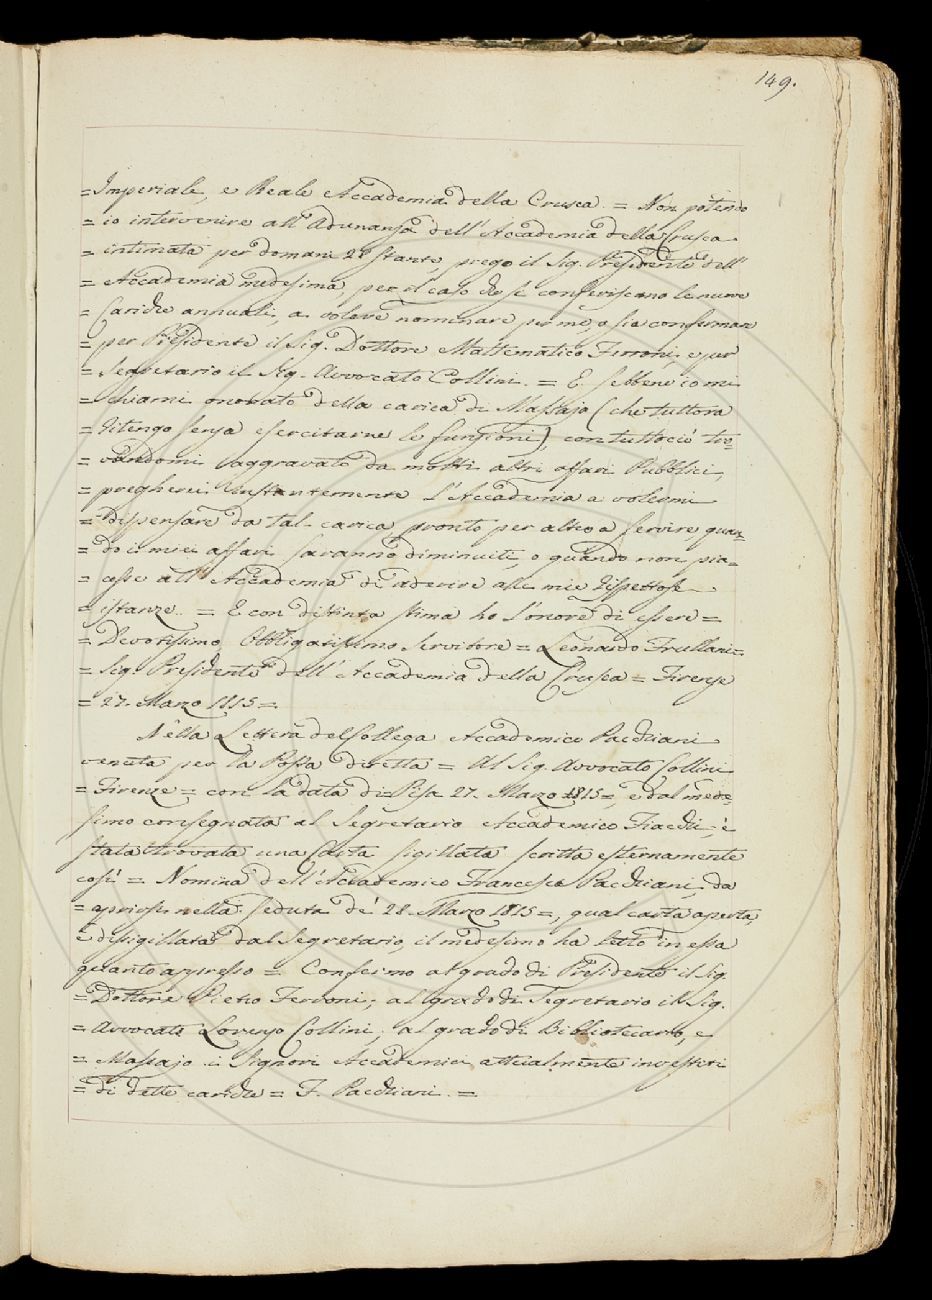 149.
=Imperiale, e Reale Accademia della Crusca. = Non potendo
= io intervenire all'Adunanza dell'Accademia della Crusca
= intimata per domani 28 stante, prego il Sig. Presidente dell'
= Accademia medesima, per il caso che si conferiscano le nuove
= Cariche annuali, a volere nominare per me, o sia confermare
= per Presidente il Sig. Dottore Mattematico Ferroni, e per
= Segretario il Sig. Avvocato Collini. = E sebbene io mi
= chiami onorato della carica di Massajo (che tuttora
= ritengo senza esercitarne le funzioni) con tuttociò tro=
= vandomi aggravato da molti altri affari Pubblici,
= pregherei instantemente l'Accademia a volermi
= dispensare da tal carica pronto per altro a servire, quan=
= do i miei affari saranno diminuiti, o quando non pia=
= cesse all'Accademia di aderire alle mie rispettose
= istanze. = E con distinta stima ho l'onore di essere =
= Devotissimo Obbligatissimo Servitore = Leonardo Frullani =
= Sig. Presidente dell'Accademia della Crusca = Firenze
= 27. Marzo 1815 =.
Nella Lettera del Collega Accademico Pacchiani
venuta per la Posta diretta = Al Sig. Avvocato Collini
= Firenze = con la data di Pisa 27. Marzo 1815 =, e dal mede=
simo consegnata al Segretario Accademico Fiacchi, è
stata trovata una Carta sigillata scritta esternamente
così = Nomina dell'Accademico Francesco Pacchiani, da
= aprirsi nella Seduta de' 28. Marzo 1815 =, qual carta aperta,
e disigillata dal Segretario, il medesimo ha letto in essa
quanto appresso = Confermo al grado di Presidente il Sig.
= Dottore Pietro Ferroni; al grado di Segretario il Sig.
= Avvocato Lorenzo Collini; al grado di Bibliotecario, e
= Massajo i Signori Accademici attualmente investiti
= di dette cariche = F. Pacchiani. =